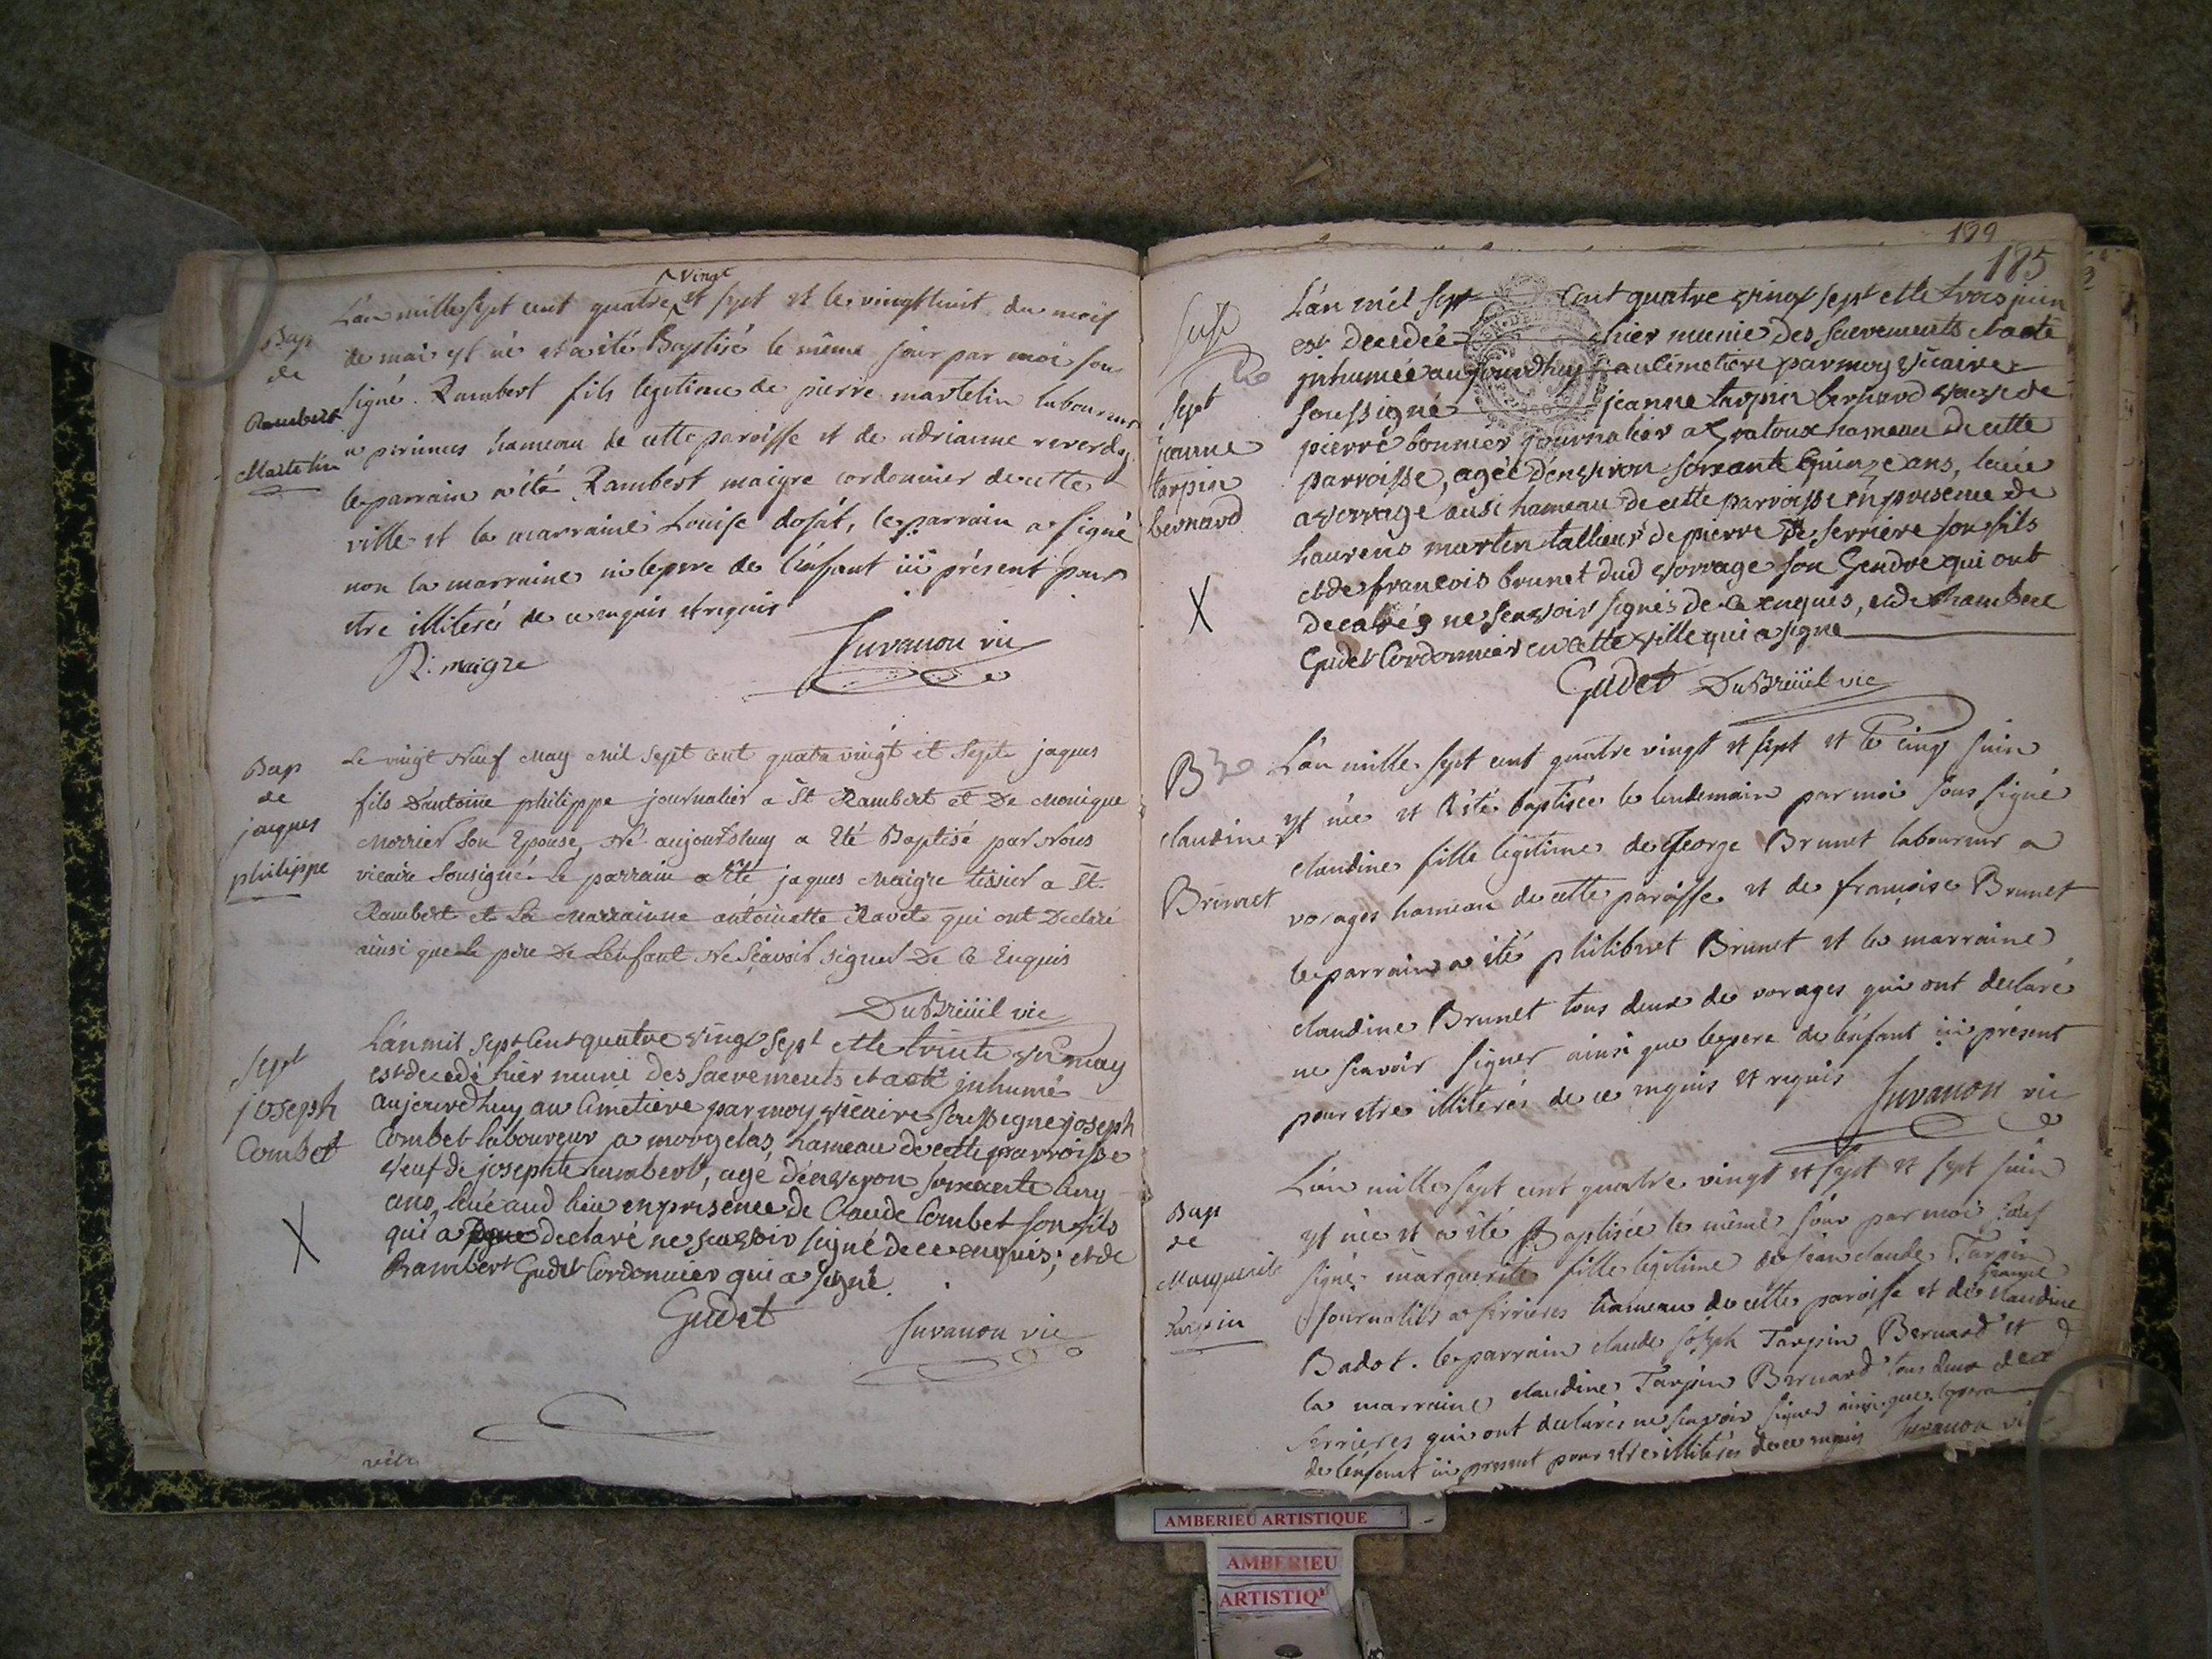 Bap
de
Rambert
Martelin
L'an mille sept cent quatre vingt et sept et le vingt huit du mois
de mai est né et a été Baptisé le même jour par moi sou
signé Rambert fils legitime de pierre martelin laboureur
a hameau de cette paroisse et de adrianne reverdy
le parrain a été Rambert maigre cordonnier de cette
ville et la marraine Louise dosat, le parrain a signé
non la marraine ni le pere de l'enfant ici présent pour
etre illiterés de ce enquis et requis
R. maigre Juvanon vic
Bap
de
jacques
philippe
Le vingt Neuf may mil sept cent quatre vingt et sept jaques
fils D'antoine philippe journalier a St Rambert et De Monique
son Epouse, Né aujourd'huy a Eté Baptisé par Nous
vicaire sousigné. Le parrain a été jaques Maigre tissier a St
Rambert et La Marrainne antoinette Ravet qui ont Declaré
ainsi que Le pere De L'enfant Ne Sçavoir signer De Ce Enquis
DuBreüil vic
Sept
joseph
Combet
X
L'an mil sept Cent quatre vingt sept et le trente un may
est decedé hier muni des Sacrements et a eté inhumé
aujourdhuy au Cimetiere par moy vicaire soussigné joseph
Combet laboureur a morgelas hameau de cette parroisse
veuf de josephte humbert, agé d'environ soixante Cinq
ans, levé aud lieu en presence de Claude Combet son fils
qui a declaré ne scavoir signé de ce enquis; et de
Rambert Gudet Cordonnier qui a signé
Gudet Juvanon vic
199
185
Sept
jeanne
tarpin
bernard
X
L'an mil sept Cent quatre vingt sept et le trois juin
est decedée hier munie des sacrements et a eté
inhumée aujourdhuy au Cimetiere par moy vicaire
soussigné jeanne tarpin bernard veuve de
pierre bonnier journalier a hameau de cette
parroisse, agée d'environ soixante quinze ans, levée
a vorrage aussi hameau de cette parroisse en presence de
Laurens martin tallieur de pierre de serriere son fils
et de francois brunet dud vorrage son Gendre qui ont
declarés ne scavoir signés de ce enquis, et de Rambert
Gudet Cordonnier en cette ville qui a signé
Gudet DuBreüil vic
B
claudine
Brunet
L'an mille sept cent quatre vingt et sept et le cinq juin
est née et a été baptisée le lendemain par moi sous signé
claudine fille legitime de George Brunet laboureur a
vorages hameau de cette paroisse et de françoise Brunet
le parrain a été philibert Brunet et la marraine
claudine Brunet tous deux de vorages qui ont declaré
ne scavoir signer ainsi que le pere de l'enfant ici présent
pour etre illiterés de ce enquis et requis Juvanon vic
Bap
de
Marguerite
Tarpin
L'an mille sept cent quatre vingt et sept et sept juin
est née et a été Baptisée le même jour par moi sous
signé marguerite fille legitime de jean claude Tarpin
journalier a serrieres hameau de cette paroisse et de claudine
Badot. le parrain claude joseph Tarpin Bernard et
la marraine claudine Tarpin Bernard tous deux de
serrieres qui ont declarés ne scavoir signer ainsi que le pere
de l'enfant ici present pour etre illiterés de ce enquis Juvanon vic
AMBERIEU ARTISTIQUE
AMBERIEU
ARTISTIQ